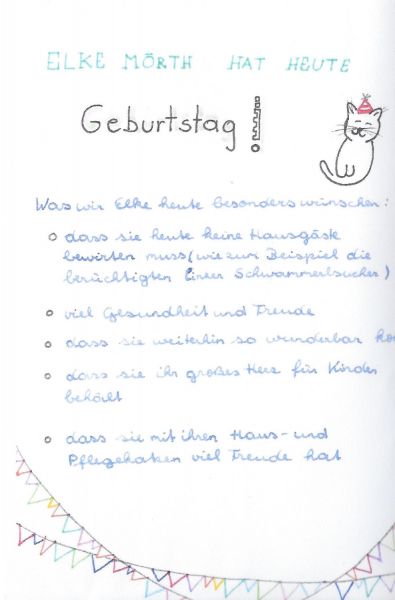 ELKE MÖRTH HAT HEUTE
Geburtstag!
Was wir Elke heute besonders wünschen:
dass sie heute keine Hausgäste
bewirten muss (wie zum Beispiel die
berüchtigten Linzer Schwammerlsucher)
viel Gesundheit und Freude
dass sie weiterhin so wunderbar
dass sie ihr großes Herz für Kinder
behält
dass sie mit ihren Haus- und
Pflegekatzen viel Freude hat